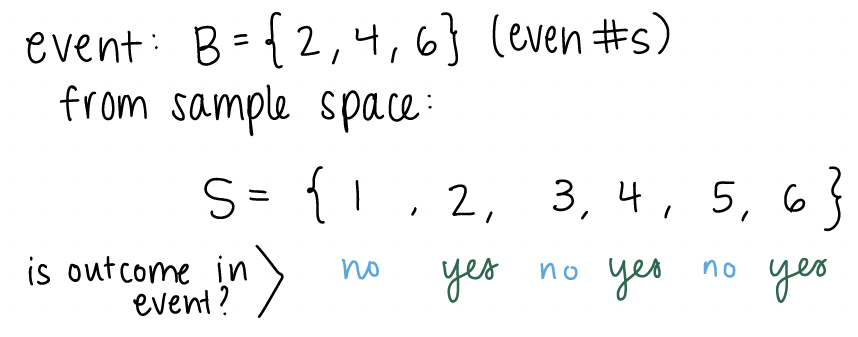 event: B = {2, 4, 6} (even #s)
from sample space:
S = { 1 , 2, 3, 4, 5, 6 }
is outcome in event? > no yes no yes no yes